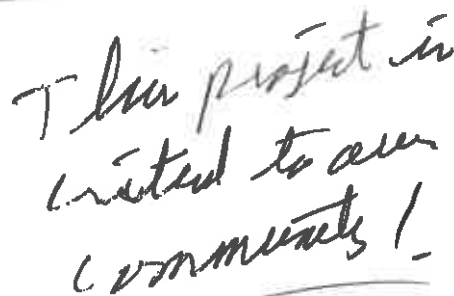 This project is
critical to our
community!